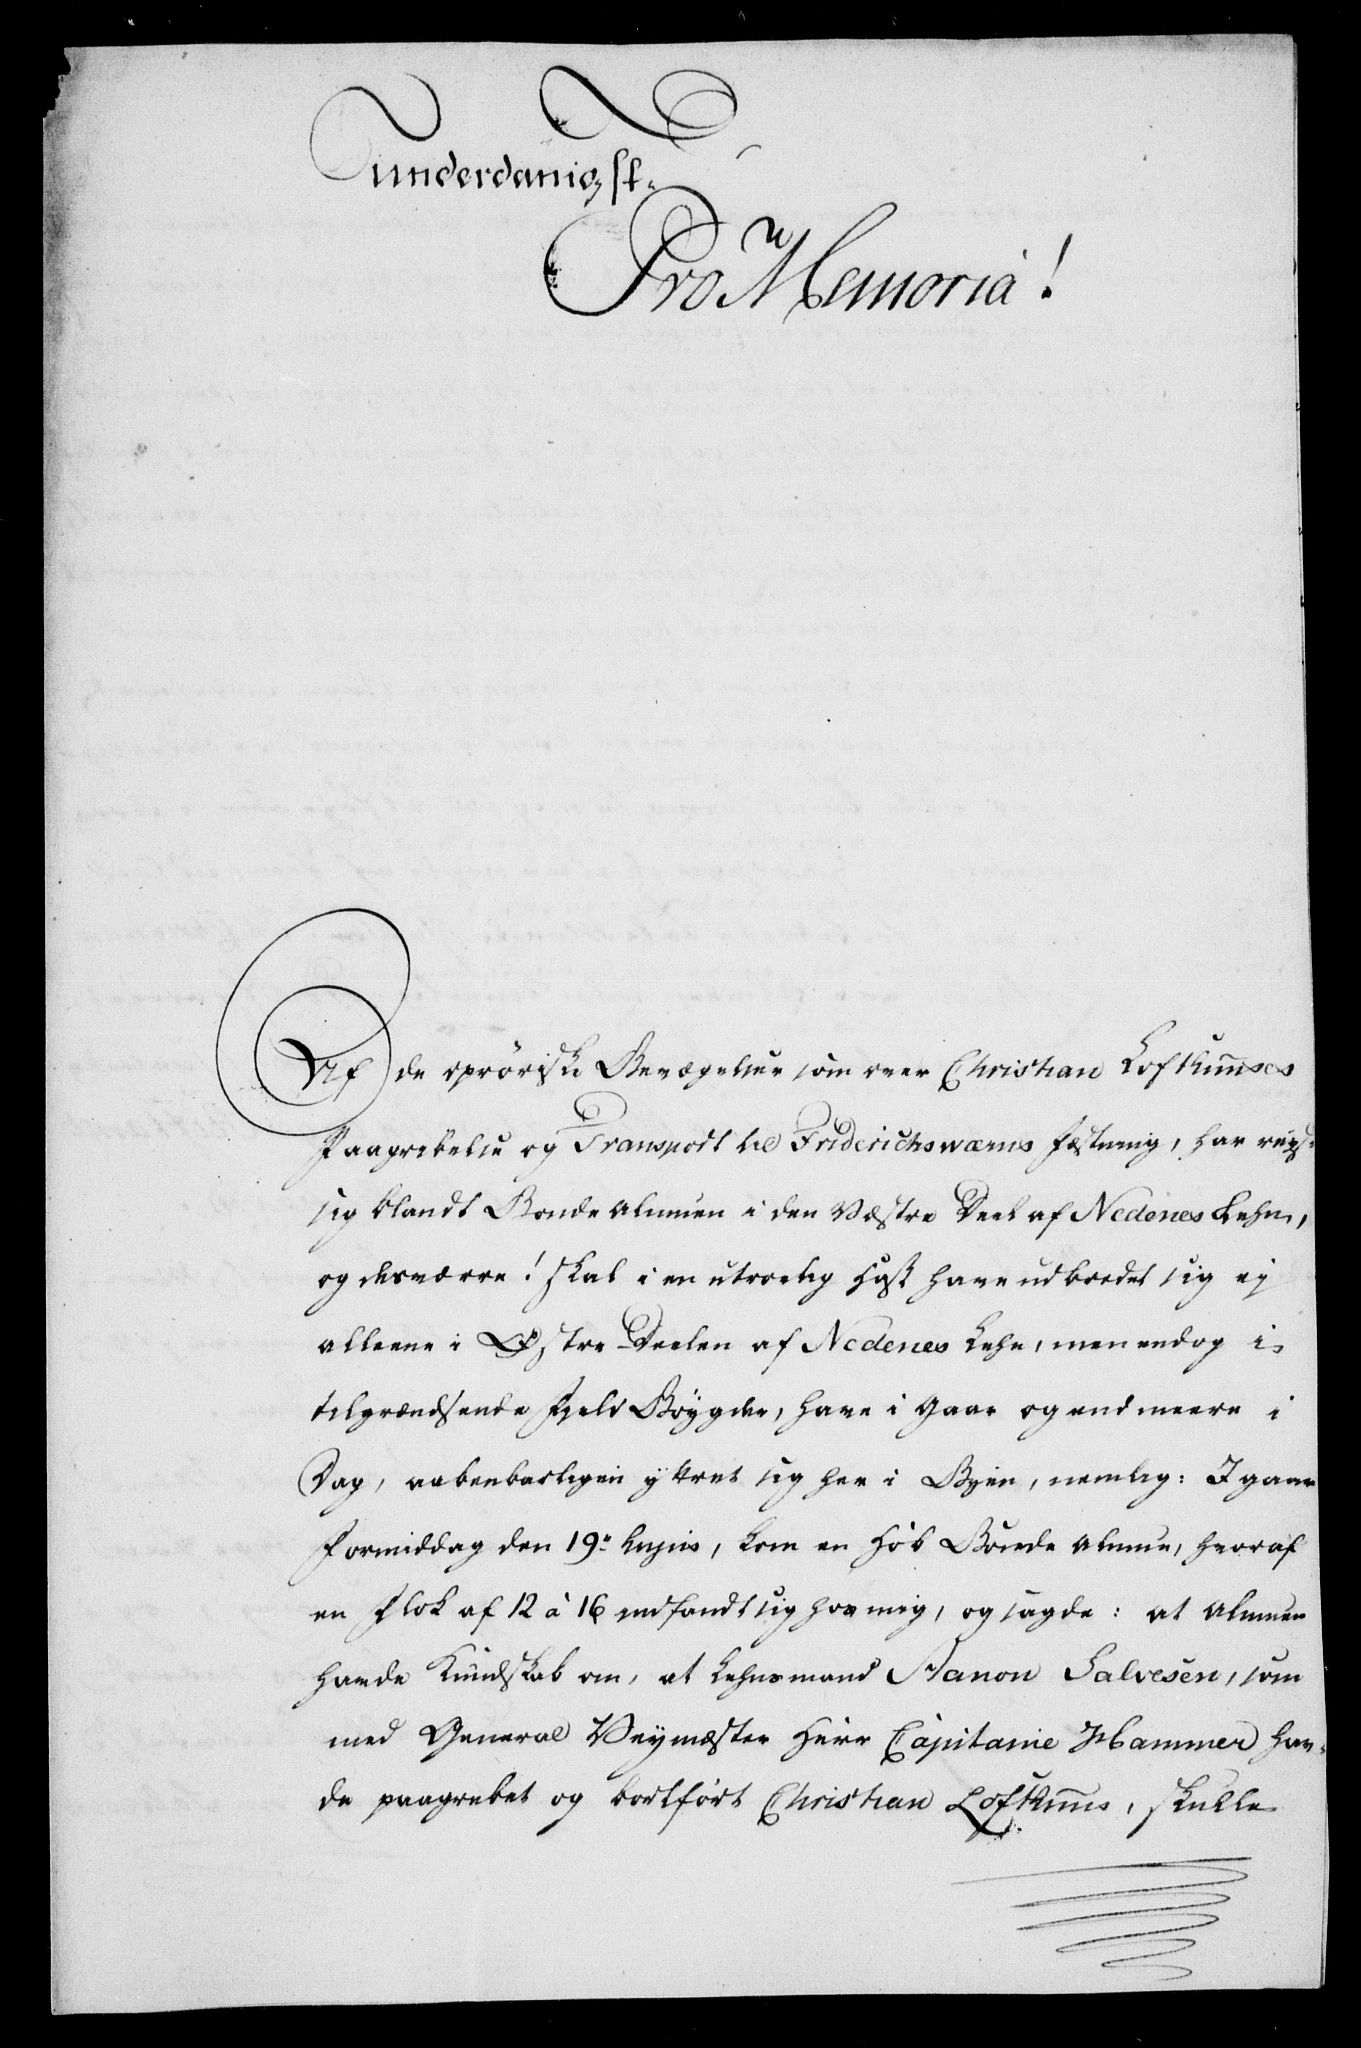 underdanigst
Pro Memoria!
Af de opröriske Bevægelser som over Christian Lofthuuses
Paagribelse og Transport til Friderichswærns Fæstning, har reyst
sig blandt Bonde Almuen i den Væstre Deel af Nedenes Lehn,
og desværre! skal i en utroelig Hast have udbredet sig ej
alleene i Østre Deelen af Nedenes Lehn, men endog i
tilgrændsende Fjeld Bøygder, have i Gaar og end meere i
Dag, aabenbarligen ÿttret sig her i Byen, nemlig: I gaar
Formiddag den 19.e hujus, kom en Hob Bonde Almue, hvoraf
en Flok af 12 à 16 indfandt sig hos mig, og sagde: at Almuen
havde Kundskab om, at Lehnsmand Aanon Salvesen, som
med General Veymæster Herr Capitaine Hammer hav-
de paagrebet og bortført Christian Lofthuus, skulle